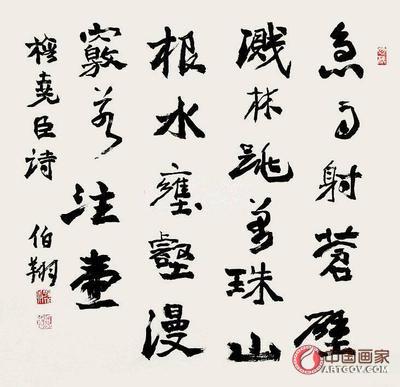 急雨射蒼壁
濺林跳萬珠山
根水壅壑漫
竅若注壺
梅堯臣詩
伯翔
中国画家
ARTGOV.COM